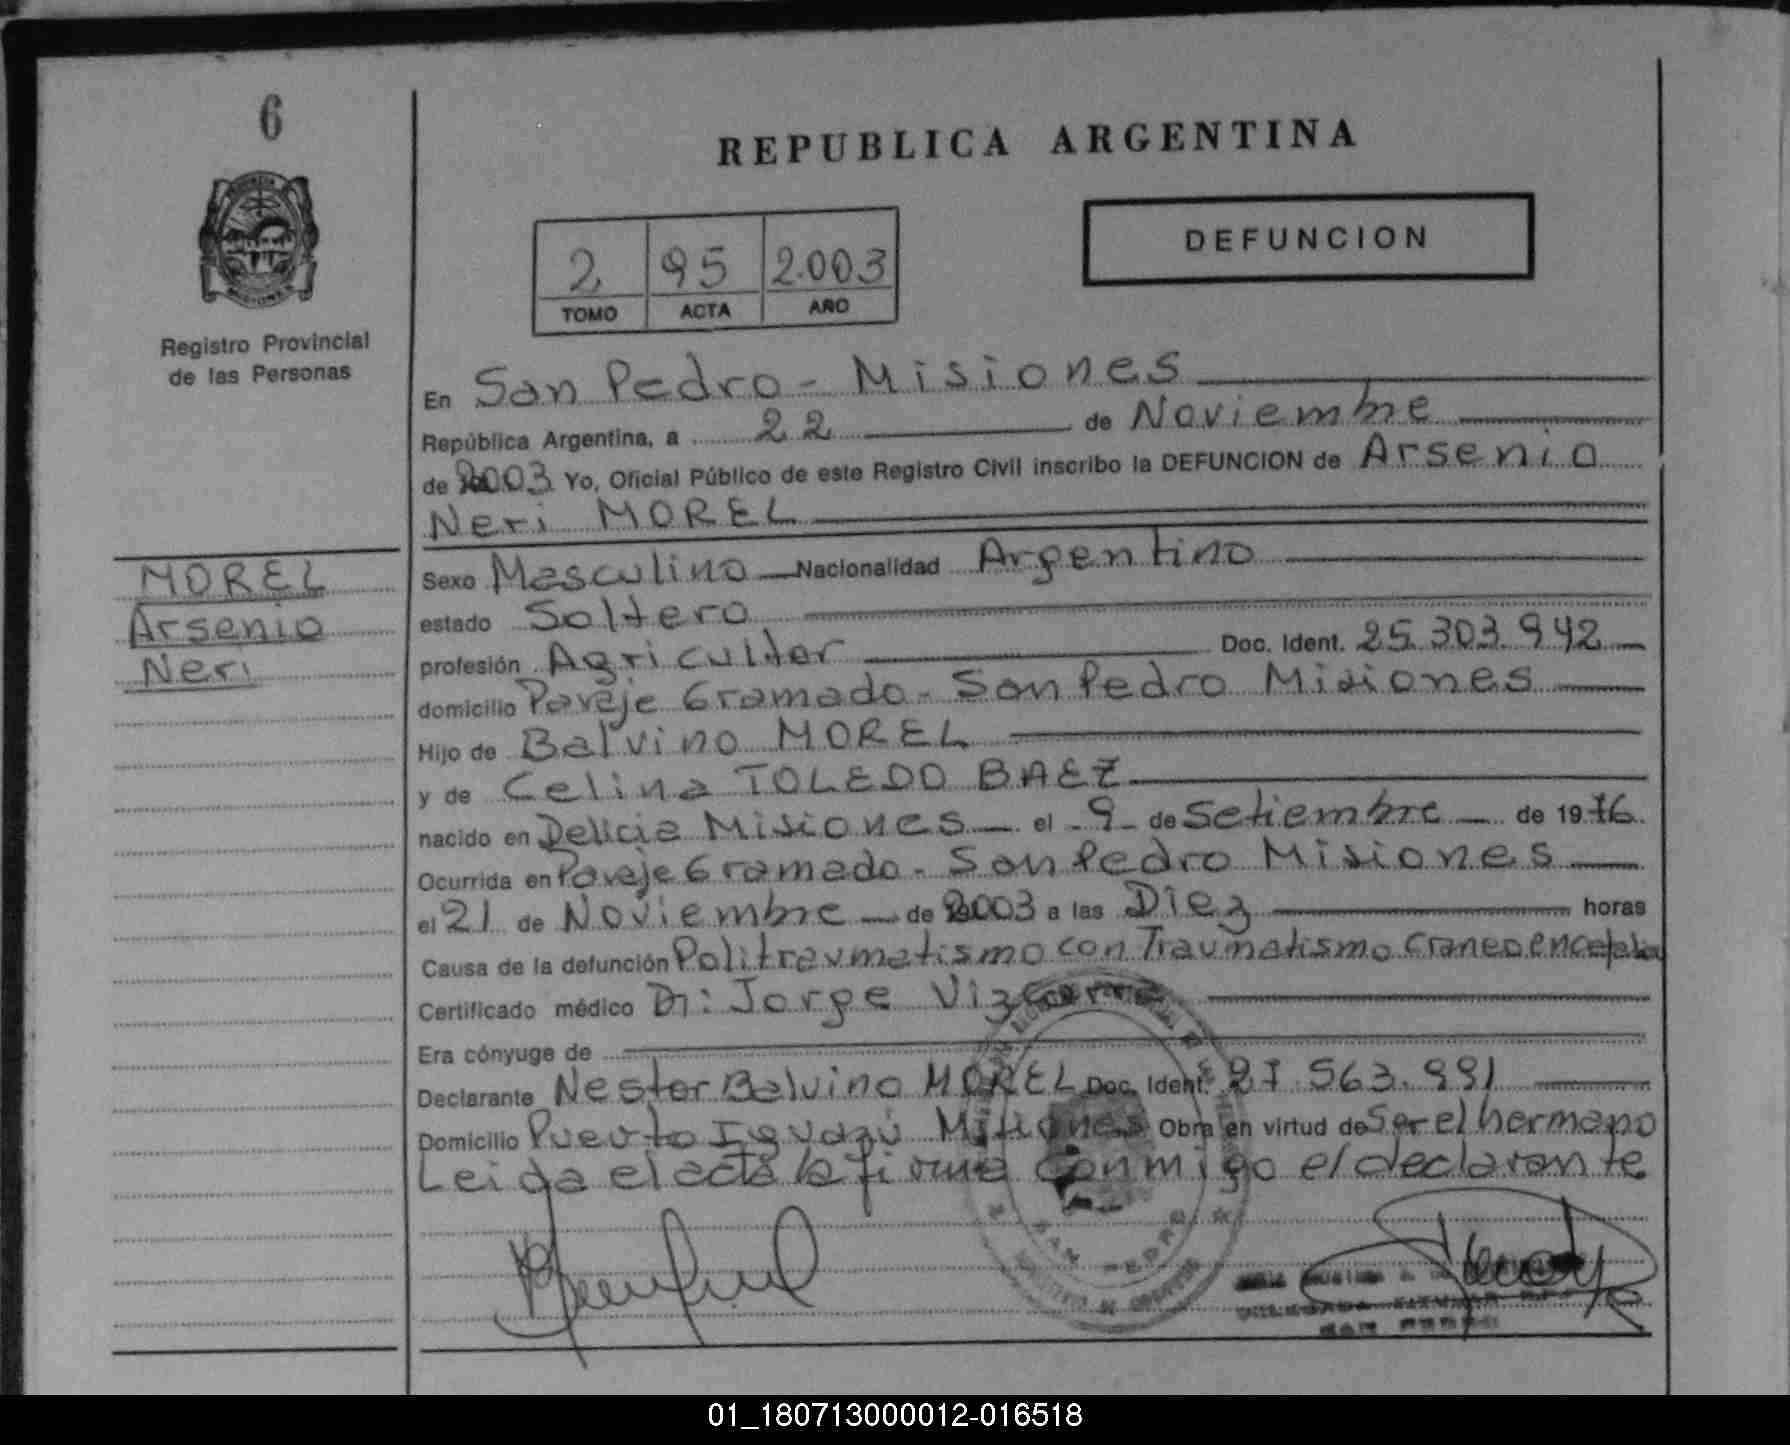 6
REPUBLICA ARGENTINA
DEFUNCION
2 95 2.003
TOMO ACTA AÑO
Registro Provincial
de las Personas
En San Pedro - Misiones
República Argentina, a 22 de Noviembre
de 2003 Yo, Oficial Público de este Registro Civil inscribo la DEFUNCION de Arsenio
Neri MOREL
MOREL
Arsenio
Neri
Sexo Masculino Nacionalidad Argentino
estado Soltero
profesión Agricultor Doc. Ident. 25.303.942
domicilio Paraje Gramado - San Pedro Misiones
Hijo de Balvino MOREL
y de Celina TOLEDO BAEZ
nacido en Delicia Misiones el 9 de Setiembre de 1976
Ocurrida en Paraje Gramado - San Pedro Misiones
el 21 de Noviembre de 2003 a las Diez horas
Causa de la defunción Politraumatismo con Traumatismo Craneoencefalico
Certificado médico Dr: Jorge
Era cónyuge de
Declarante Nestor Balvino MOREL Doc. Ident. 27.563.991
Domicilio Puerto Iguazú Misiones Obra en virtud de Ser el hermano
Leida el acta la firma conmigo el declarante
SAN PEDRO
SAN PEDRO
01_180713000012-016518